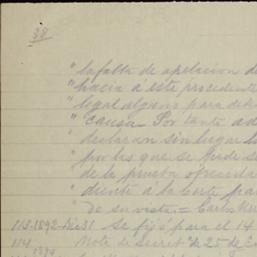 88
"la falta de apelacion de
"hacia á este procedente
"legal alguno para dete
"causa - Por tanto ad
"declaran sin lugar l
"por las que se
"de la prueba ofrecida
"diente á la Corte pa
"de su vista = Carlos
113.1892-Dic 31 Se fijó para el 14
114 Nota de Secret° de 25 de E
1893